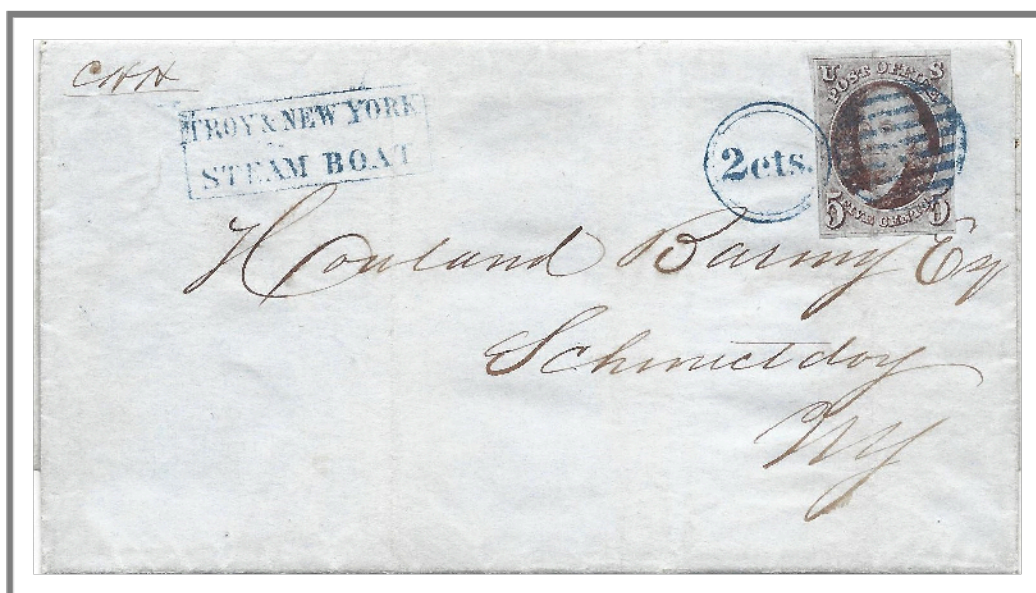 CHH
TROY & NEW YORK
STEAM BOAT
2cts.
U S
POST OFFICE
5 FIVE CENTS 5
Howland Barny Esq
Schenectdoy
NY